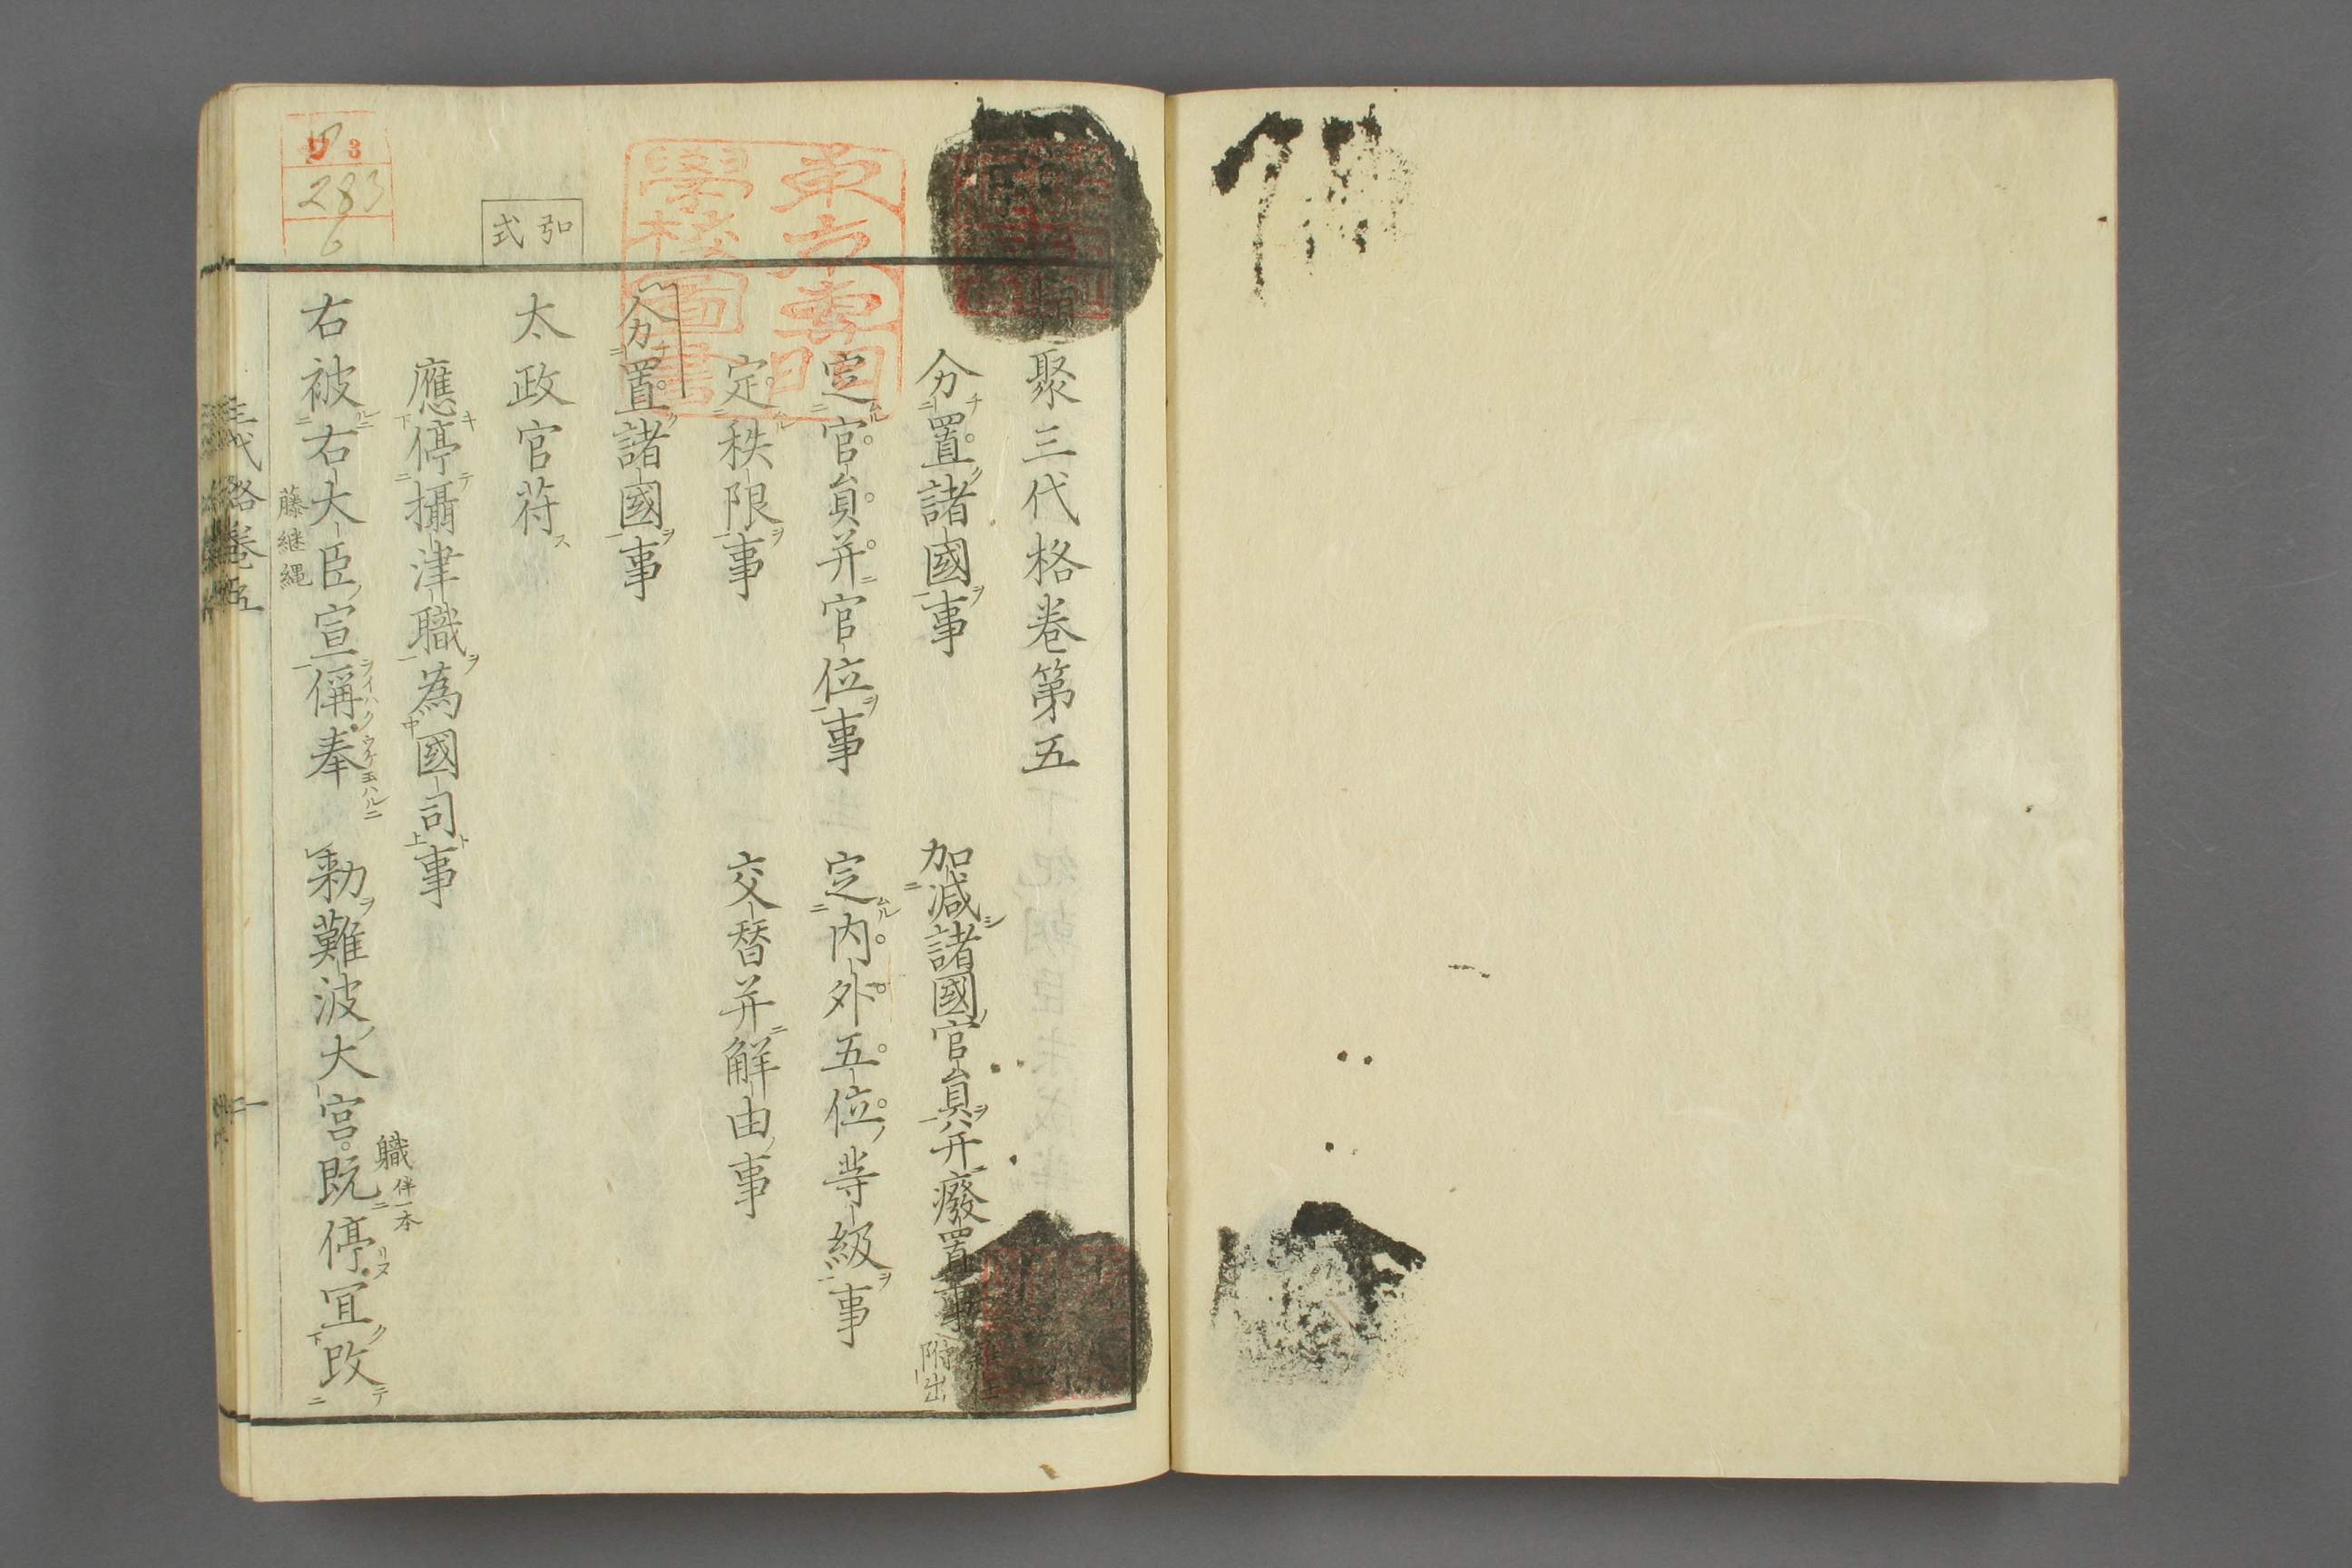 類聚三代格卷第五
分置諸國事
加減諸國官員并廢置事
附出
定官員并官位事
定内外五位等級事
定秩限事
交替并解由事
分置諸國事
弘式
太政官符
應停攝津職為國司事
右被右大臣宣偁奉 勅難波大宮既停宜改
藤継縄
職伴一本
三代格卷五
一
東京専門學校圖書
ワ3
283
6